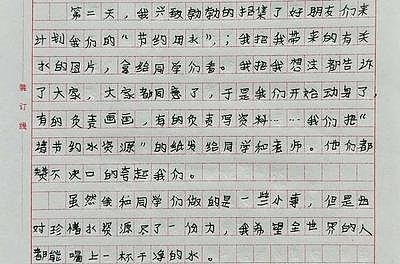 第二天，我兴致勃勃的招集了好朋友们来
计划我们的“节约用水”，；我把我带来的有关
水的图片，拿给同学们看。我把我想法都告诉
了大家，大家都同意了，于是我们开始动身了，
有的负责画画，有的负责写资料……我们把“
惜节约水资源”的纸发给同学和老师。他们都
赞不决口的夸起我们。
虽然使和同学们做的是一些小事，但是也
对珍惜水资源尽了一份力，我希望全世界的人
都能喝上一杯干净的水。
装订线